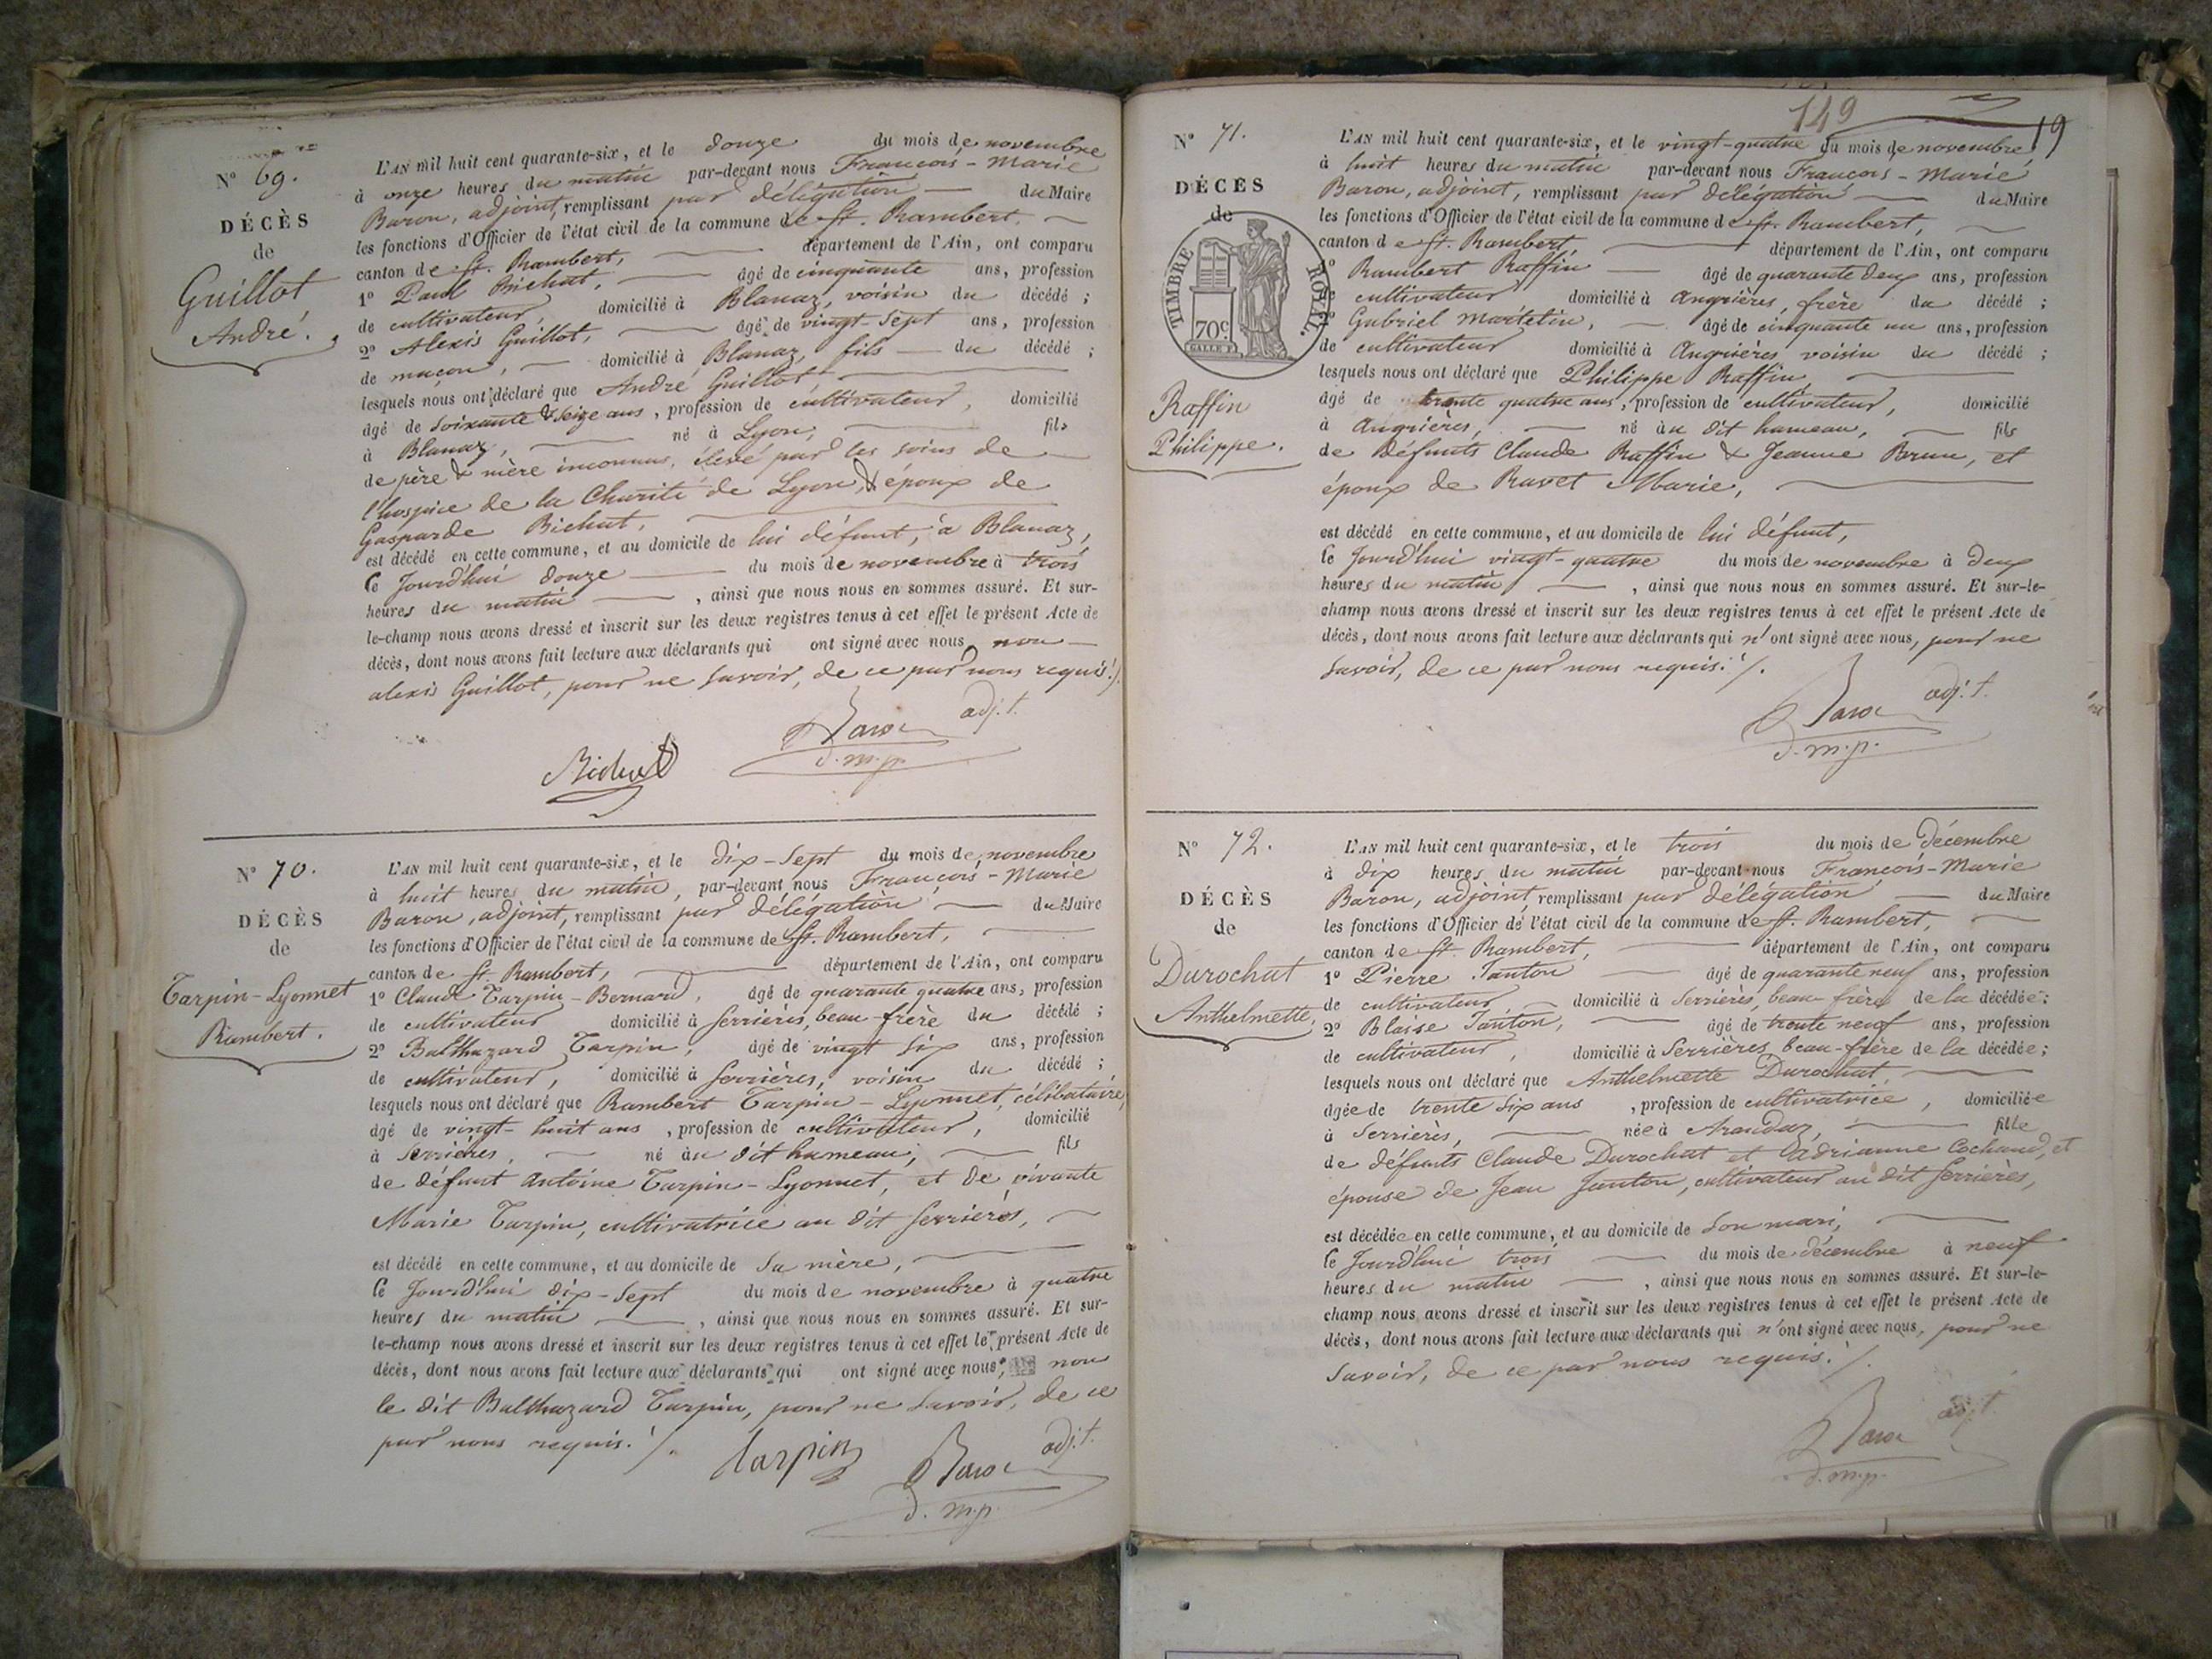 N° 69.
DÉCÈS
de
Guillot
André.
L'AN mil huit cent quarante-six, et le douze du mois de novembre
à onze heures du matin par-devant nous François-Marie
Baron, adjoint, remplissant par délégation du Maire
les fonctions d'Officier de l'état civil de la commune de St. Rambert,
canton de St. Rambert, département de l'Ain, ont comparu
1° Paul Bichat, âgé de cinquante ans, profession
de cultivateur, domicilié à Blanaz, voisin du décédé ;
2° Alexis Guillot, âgé de vingt-sept ans, profession
de maçon, domicilié à Blanaz, fils du décédé ;
lesquels nous ont déclaré que André Guillot
âgé de soixante & seize ans, profession de cultivateur, domicilié
à Blanaz, né à Lyon, fils
de père & mère inconnus, élevé par les soins de
l'hospice de la Charité de Lyon, & époux de
Gasparde Bichat,
est décédé en cette commune, et au domicile de lui défunt, à Blanaz,
le jourd'hui douze du mois de novembre à trois
heures du matin, ainsi que nous nous en sommes assuré. Et sur-
le-champ nous avons dressé et inscrit sur les deux registres tenus à cet effet le présent Acte de
décès, dont nous avons fait lecture aux déclarants qui ont signé avec nous, non
alexis Guillot, pour ne savoir, de ce par nous requis./.
Bichat
Baron adj.t.
d.m.p.
N° 70.
DÉCÈS
de
Tarpin-Lyonnet
Rambert.
L'AN mil huit cent quarante-six, et le dix-sept du mois de novembre
à huit heures du matin, par-devant nous François-Marie
Baron, adjoint, remplissant par délégation du Maire
les fonctions d'Officier de l'état civil de la commune de St. Rambert,
canton de St. Rambert, département de l'Ain, ont comparu
1° Claude Tarpin-Bernard, âgé de quarante quatre ans, profession
de cultivateur domicilié à Serrières, beau-frère du décédé ;
2° Balthazard Tarpin, âgé de vingt six ans, profession
de cultivateur, domicilié à Serrières, voisin du décédé ;
lesquels nous ont déclaré que Rambert Tarpin-Lyonnet, célibataire,
âgé de vingt-huit ans, profession de cultivateur, domicilié
à Serrières, né au dit hameau, fils
de défunt antoine Tarpin-Lyonnet, et de vivante
Marie Tarpin, cultivatrice au dit Serrières,
est décédé en cette commune, et au domicile de sa mère,
le jourd'hui dix-sept du mois de novembre à quatre
heures du matin, ainsi que nous nous en sommes assuré. Et sur-
le-champ nous avons dressé et inscrit sur les deux registres tenus à cet effet le présent Acte de
décès, dont nous avons fait lecture aux déclarants qui ont signé avec nous, non
le dit Balthazard Tarpin, pour ne savoir, de ce
par nous requis./.
tarpin
Baron adj.t.
d.m.p.
149
19
N° 71.
DÉCÈS
de
TIMBRE ROYAL.
70c
Raffin
Philippe.
L'AN mil huit cent quarante-six, et le vingt-quatre du mois de novembre
à huit heures du matin par-devant nous François-Marie
Baron, adjoint, remplissant par délégation du Maire
les fonctions d'Officier de l'état civil de la commune de St. Rambert,
canton de St. Rambert, département de l'Ain, ont comparu
Rambert Raffin âgé de quarante deux ans, profession
cultivateur domicilié à angrières, frère du décédé ;
Gabriel Martelin, âgé de cinquante un ans, profession
de cultivateur domicilié à Angrières, voisin du décédé ;
lesquels nous ont déclaré que Philippe Raffin,
âgé de trente quatre ans, profession de cultivateur, domicilié
à Angrières, né au dit hameau, fils
de défunts Claude Raffin & Jeanne Brun, et
époux de Ravet Marie,
est décédé en cette commune, et au domicile de lui défunt,
le jourd'hui vingt-quatre du mois de novembre à deux
heures du matin, ainsi que nous nous en sommes assuré. Et sur-le-
champ nous avons dressé et inscrit sur les deux registres tenus à cet effet le présent Acte de
décès, dont nous avons fait lecture aux déclarants qui n'ont signé avec nous, pour ne
savoir, de ce par nous requis./.
Baron adj.t.
d.m.p.
N° 72.
DÉCÈS
de
Durochat
Anthelmette,
L'AN mil huit cent quarante-six, et le trois du mois de décembre
à dix heures du matin par-devant nous François-Marie
Baron, adjoint, remplissant par délégation du Maire
les fonctions d'Officier de l'état civil de la commune de St. Rambert,
canton de St. Rambert, département de l'Ain, ont comparu
1° Pierre Janton âgé de quarante neuf ans, profession
de cultivateur domicilié à Serrières, beau-frère de la décédée ;
2° Blaise Janton, âgé de trente neuf ans, profession
de cultivateur, domicilié à Serrières, beau-frère de la décédée ;
lesquels nous ont déclaré que Anthelmette Durochat,
âgée de trente six ans, profession de cultivatrice, domiciliée
à Serrières, née à Arandaz, fille
de défunts Claude Durochat et Adrianne Cochand, et
épouse de Jean Janton, cultivateur au dit Serrières,
est décédée en cette commune, et au domicile de son mari,
le jourd'hui trois du mois de décembre à neuf
heures du matin, ainsi que nous nous en sommes assuré. Et sur-le-
champ nous avons dressé et inscrit sur les deux registres tenus à cet effet le présent Acte de
décès, dont nous avons fait lecture aux déclarants qui n'ont signé avec nous, pour ne
savoir, de ce par nous requis./.
Baron adj.t.
d.m.p.